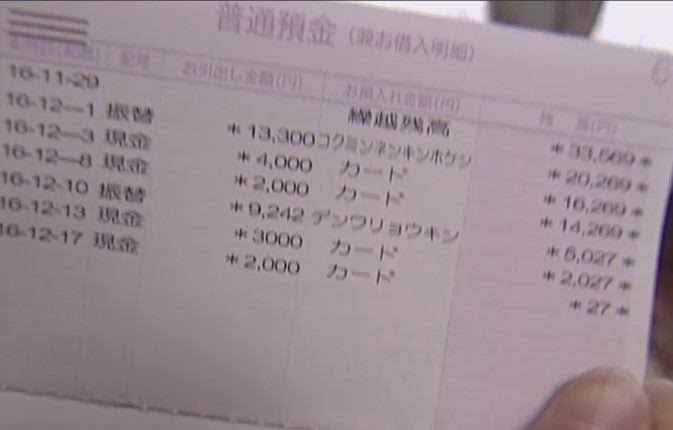 普通預金(兼お借入明細)
6
お引出し金額(円) お預入れ金額(円)
16-11-29 繰越残高 *33,569*
16-12-1 振替 *13,300 コクミンネンキンホケン *20,269*
16-12-3 現金 *4,000 カード *16,269*
16-12-8 現金 *2,000 カード *14,269*
16-12-10 振替 *9,242 デンワリョウキン *5,027*
16-12-13 現金 *3000 カード *2,027*
16-12-17 現金 *2,000 カード *27*